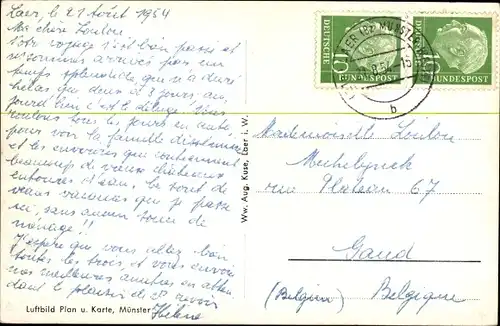 Laer, le 21 Août 1954
Ma chère Loulou
Votre voyage s'est bien passé et
nous sommes arrivés par un
temps splendide, qui n'a duré
hélas que deux à 3 jours, au
jourd'hui c'est le déluge! Nous
roulons tous les jours en auto
pour voir la famille
et les environs qui contiennent
beaucoup de vieux châteaux
entourés d'eau. Ce sont de
vraies vacances que je passe
ici, sans aucun soin de
ménage!!
J'espère que vous allez bien
toutes les trois et vous envoie
nos meilleures amitiés en atten
dant le plaisir de revoir
Hélène
Luftbild Plan u. Karte, Münster
Ww. Aug. Kuse, Laer i. W.
DEUTSCHE
BUNDESPOST
10
DEUTSCHE
BUNDESPOST
10
b
Mademoiselle Loulou
rue Plateau 67
Gand
(Belgien) Belgique